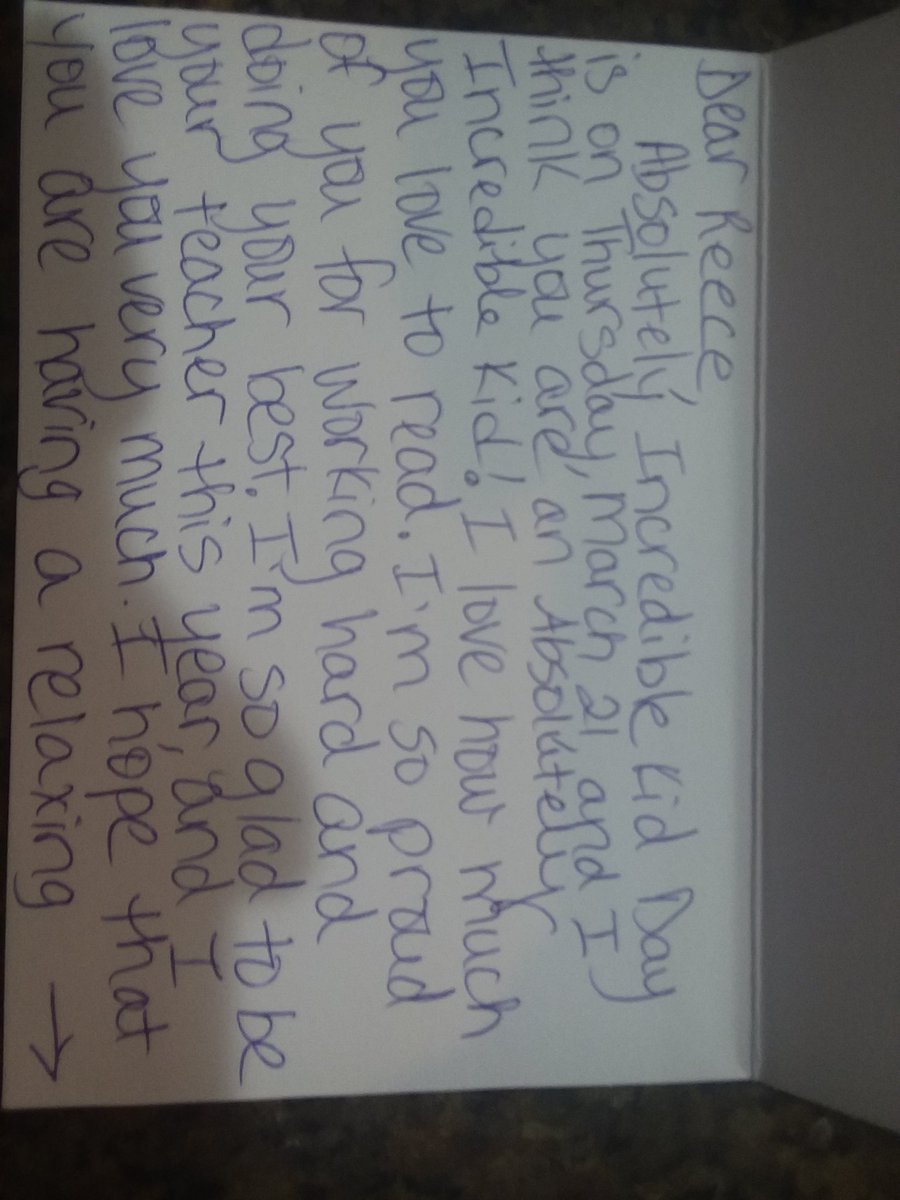 Dear Reece,
Absolutely Incredible Kid Day
is on Thursday, March 21 and I
think you are an Absolutely
Incredible Kid! I love how much
you love to read. I'm so proud
of you for working hard and
doing your best. I'm so glad to be
your teacher this year, and I
love you very much. I hope that
you are having a relaxing →